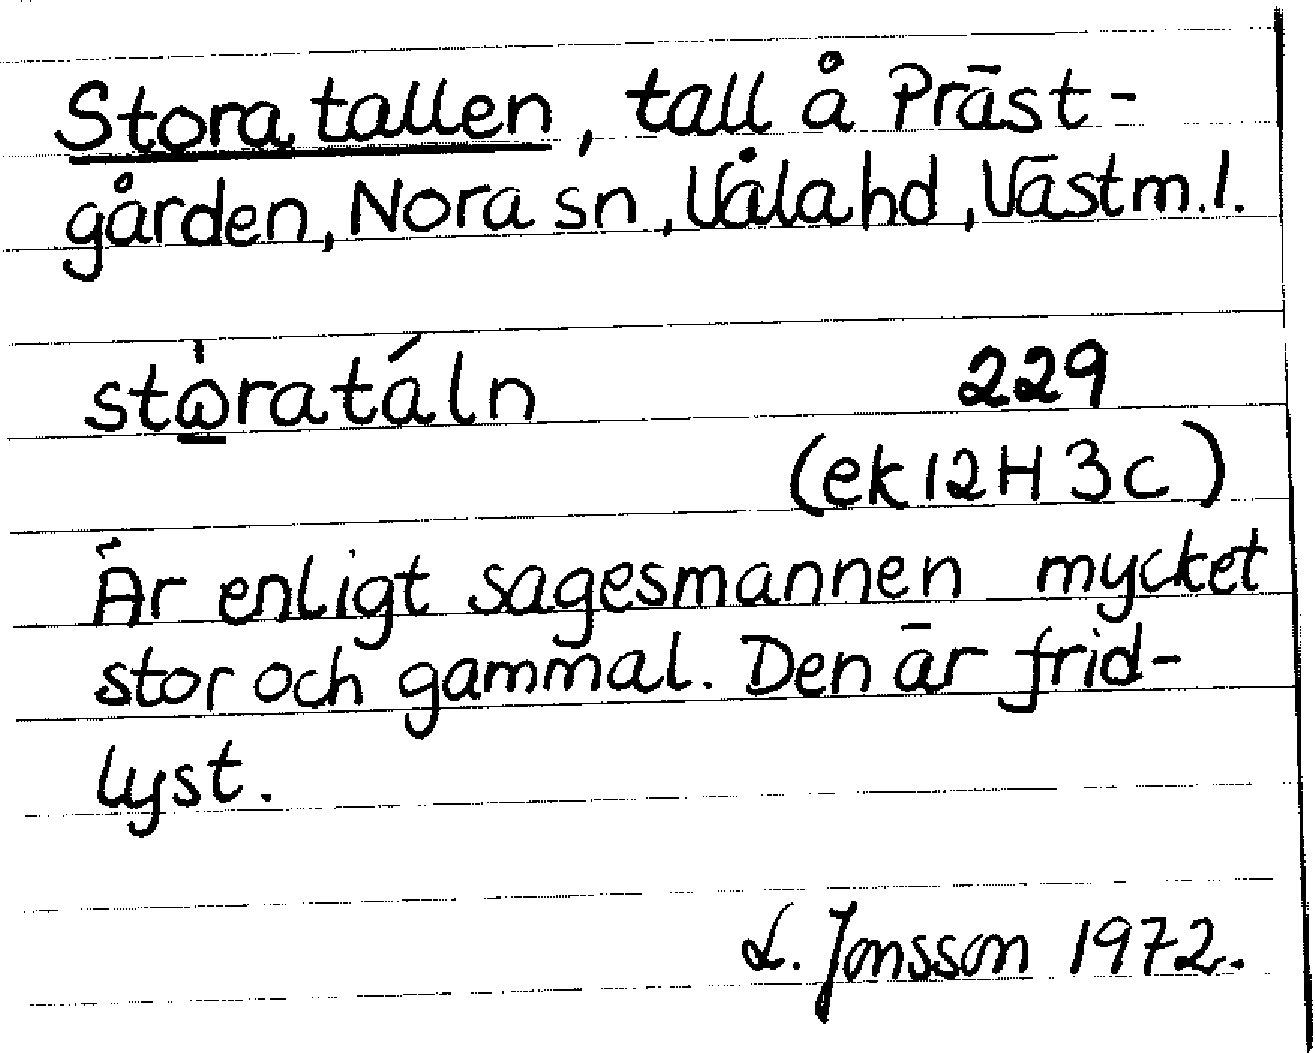 Stora tallen, tall å Präst-
gården, Nora sn, Våla hd, Västm. l.
stω̲̇ratáln 229
(ek 12H 3c)
Är enligt sagesmannen mycket
stor och gammal. Den är frid-
lyst.
L. Jonsson 1972.